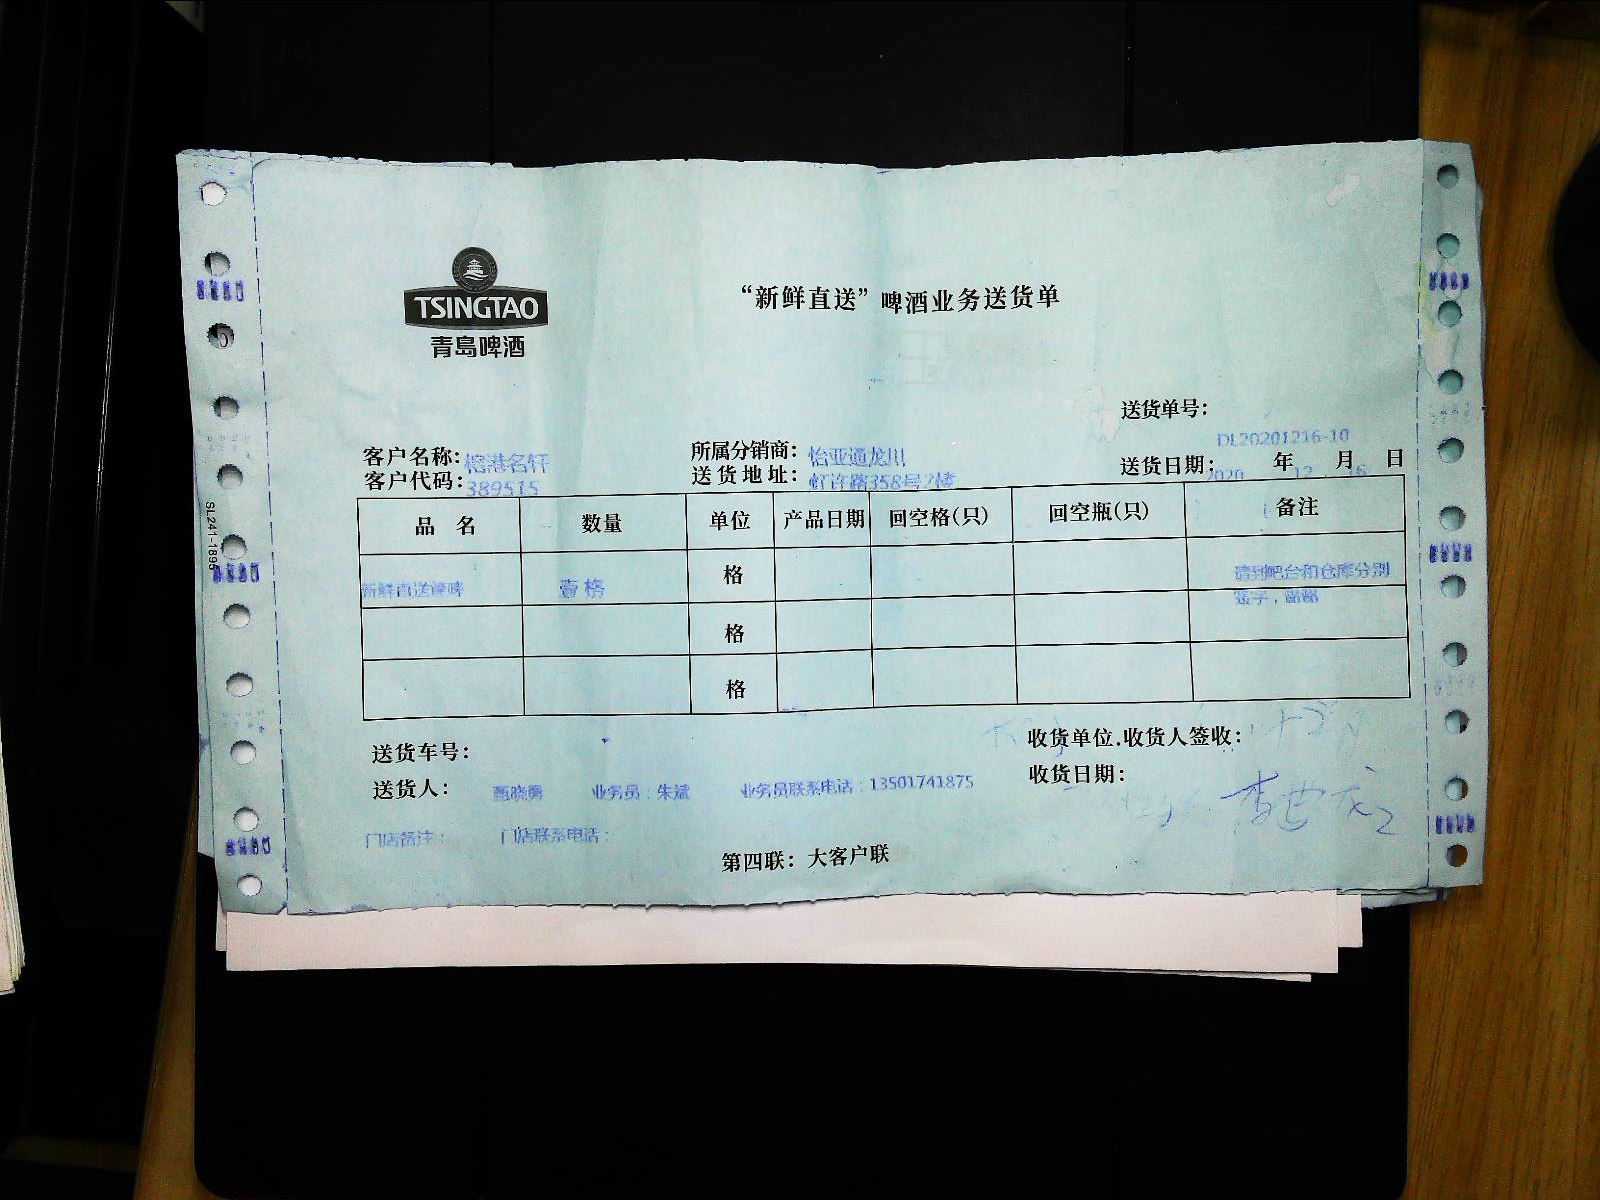 TSINGTAO
青岛啤酒
“新鲜直送”啤酒业务送货单
送货单号：
DL20201216-10
客户名称：榕港名轩 所属分销商：怡亚通龙川 送货日期：2020年12月16日
客户代码：389515 送货地址：虹许路358号2楼
品名 数量 单位 产品日期 回空格(只) 回空瓶(只) 备注
新鲜直送 壹格 格 请到吧台和仓库分别
签字，谢谢
格
格
送货车号： 收货单位.收货人签收：
送货人： 甄晓勇 业务员：朱斌 业务员联系电话：13501741875 收货日期：
门店备注： 门店联系电话：
第四联：大客户联
SL241-1895